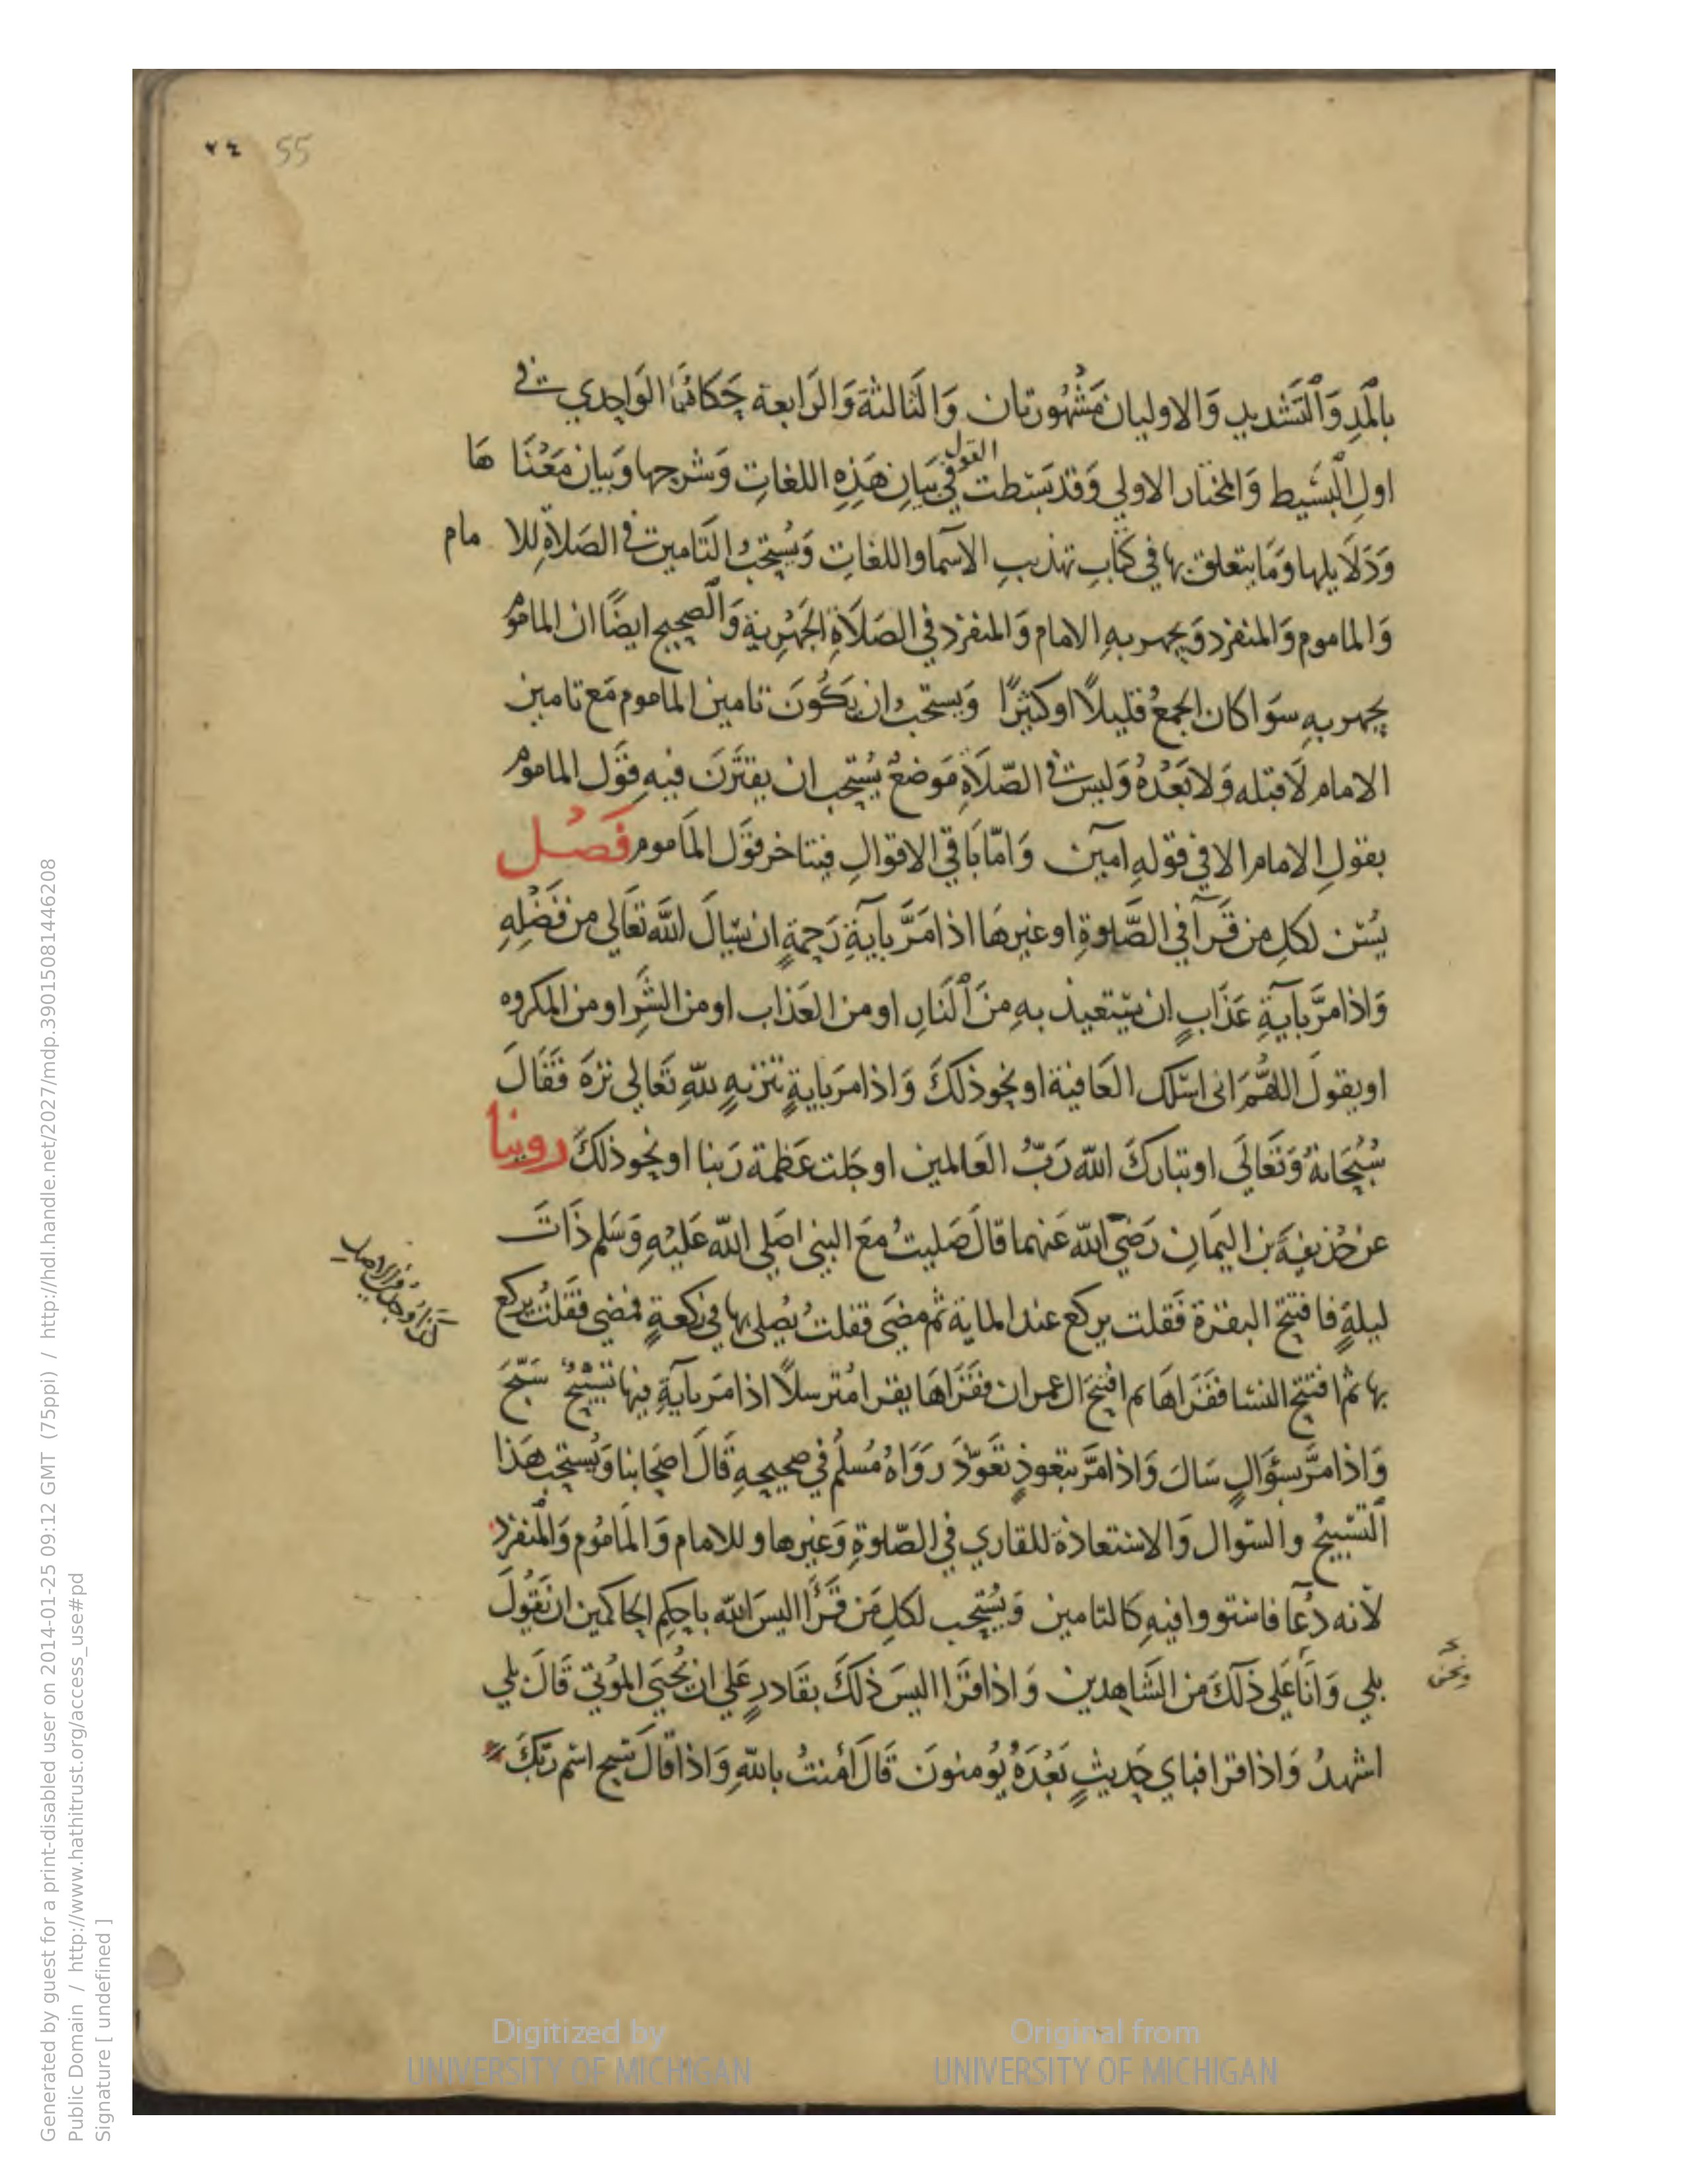 ٢٤ 55
بالمَدِ وَالتَشَديدِ وَالاوليان مَشْهُورتان وَالثَالثة وَالرَابعة حَكاهُمَا الوَاحدي في
اولِ البَسيط وَالمختار الاولي وَقد بسَطت القول في بَيانِ هَذِهِ اللغاتِ وَشرحها وَبيان مَعْنَا هَا
وَدَلَايلها وَمَا يتعلق بها في كتَابِ تهذيبِ الاسمآ واللغاتِ وَيُستحَبُ التَامين في الصَلاةِ للا مام
وَالماموم وَالمنفرد وَيجهر بهِ الامام وَالمنفرد في الصَلاَةِ الجَهْرِية وَالصحِيح ايضًا ان الماموم
يجهر بهِ سوَا كان الجمعُ قليلاً او كثيرًا وَيستحَبُ ان يَكُونَ تامين الماموم مَع تامين
الامام لَا قبْله وَلا بَعْدهُ وَليس في الصّلَاةِ مَوضعٌ يُستحَب ان يقترَنَ فيهِ قَول الماموم
بقولِ الامام الا في قولهِ امين وَامّا بَاقي الاقوالِ فيتاخر قوَل المَاموم فَصْل
يُسَن لكلِ من قَرآ في الصَّلوةِ او غيرهَا اذا مَرَّ بآيةِ رَحمةٍ ان يسَالَ اللهَ تعَالي من فَضْلِهِ
وَاذا مرَّ بآيةِ عَذَابٍ ان يستعيذ بهِ منَ النَارِ او من العَذاب او من الشرِ او من المكروه
او يقولَ اللهُمَ اني اسئلك العَافية او نحو ذلكَ وَاذا مرَ بايةِ تنزيهٍ للهِ تعَالي نزهَ فقَالَ
سُبْحَانهُ وَتعَالَي او تبَاركَ الله رَبُّ العَالمين او جَلت عَظمة رَبنا او نحو ذلكَ روينا
عن حُذيفةَ بن اليَمانِ رَضيَ الله عَنهما قالَ صَليتُ مَعَ النبي صَلي الله عَليْهِ وَسَلم ذَاتَ
ليلةٍ فافتتح البقرة فقلت يركع عند الماية ثم مضَي فقلتُ يُصلي بها في ركعةٍ فمضي فقلتُ يركع
كذا وجدت في الاصل
بها ثم افتتح النسا فقرَاهَا ثم افتتحَ ال عمران فقرَاهَا يقرا مُترسلاً اذا مَر بآيةٍ فيها تَسْبيحٌ سَبّحَ
وَاذا مرَّ بسؤالٍ سَالَ وَاذا مَرَّ بتعوذٍ تعَوّذَ رَوَاهُ مُسلمٌ في صحيحهِ قَالَ اصحَابنا وَيُستحَب هَذا
التَسْبيحُ والسّوال وَالاستعاذة للقاري في الصّلوةِ وَغيرها وللامام وَالمَامُوم وَالمنفرد
لانه دُعآ فاستووا فيهِ كالتامين وَيُستحَب لكلِ مَن قَرأ اليسَ الله باحكم الحَاكمين ان يقُولَ
بلي وَانَا عَلي ذلكَ من الشَاهِدين وَاذا قرَا اليسَ ذلكَ بقَادرٍ عَلي ان يُحيَي المَوتي قَالَ بلي
ونحن
اشهدُ وَاذا قرا فباي حَديثٍ بَعْدَهُ يُومنونَ قَالَ امَنتُ باللهِ وَاذا قالَ سَبح اسْم رَبكَ